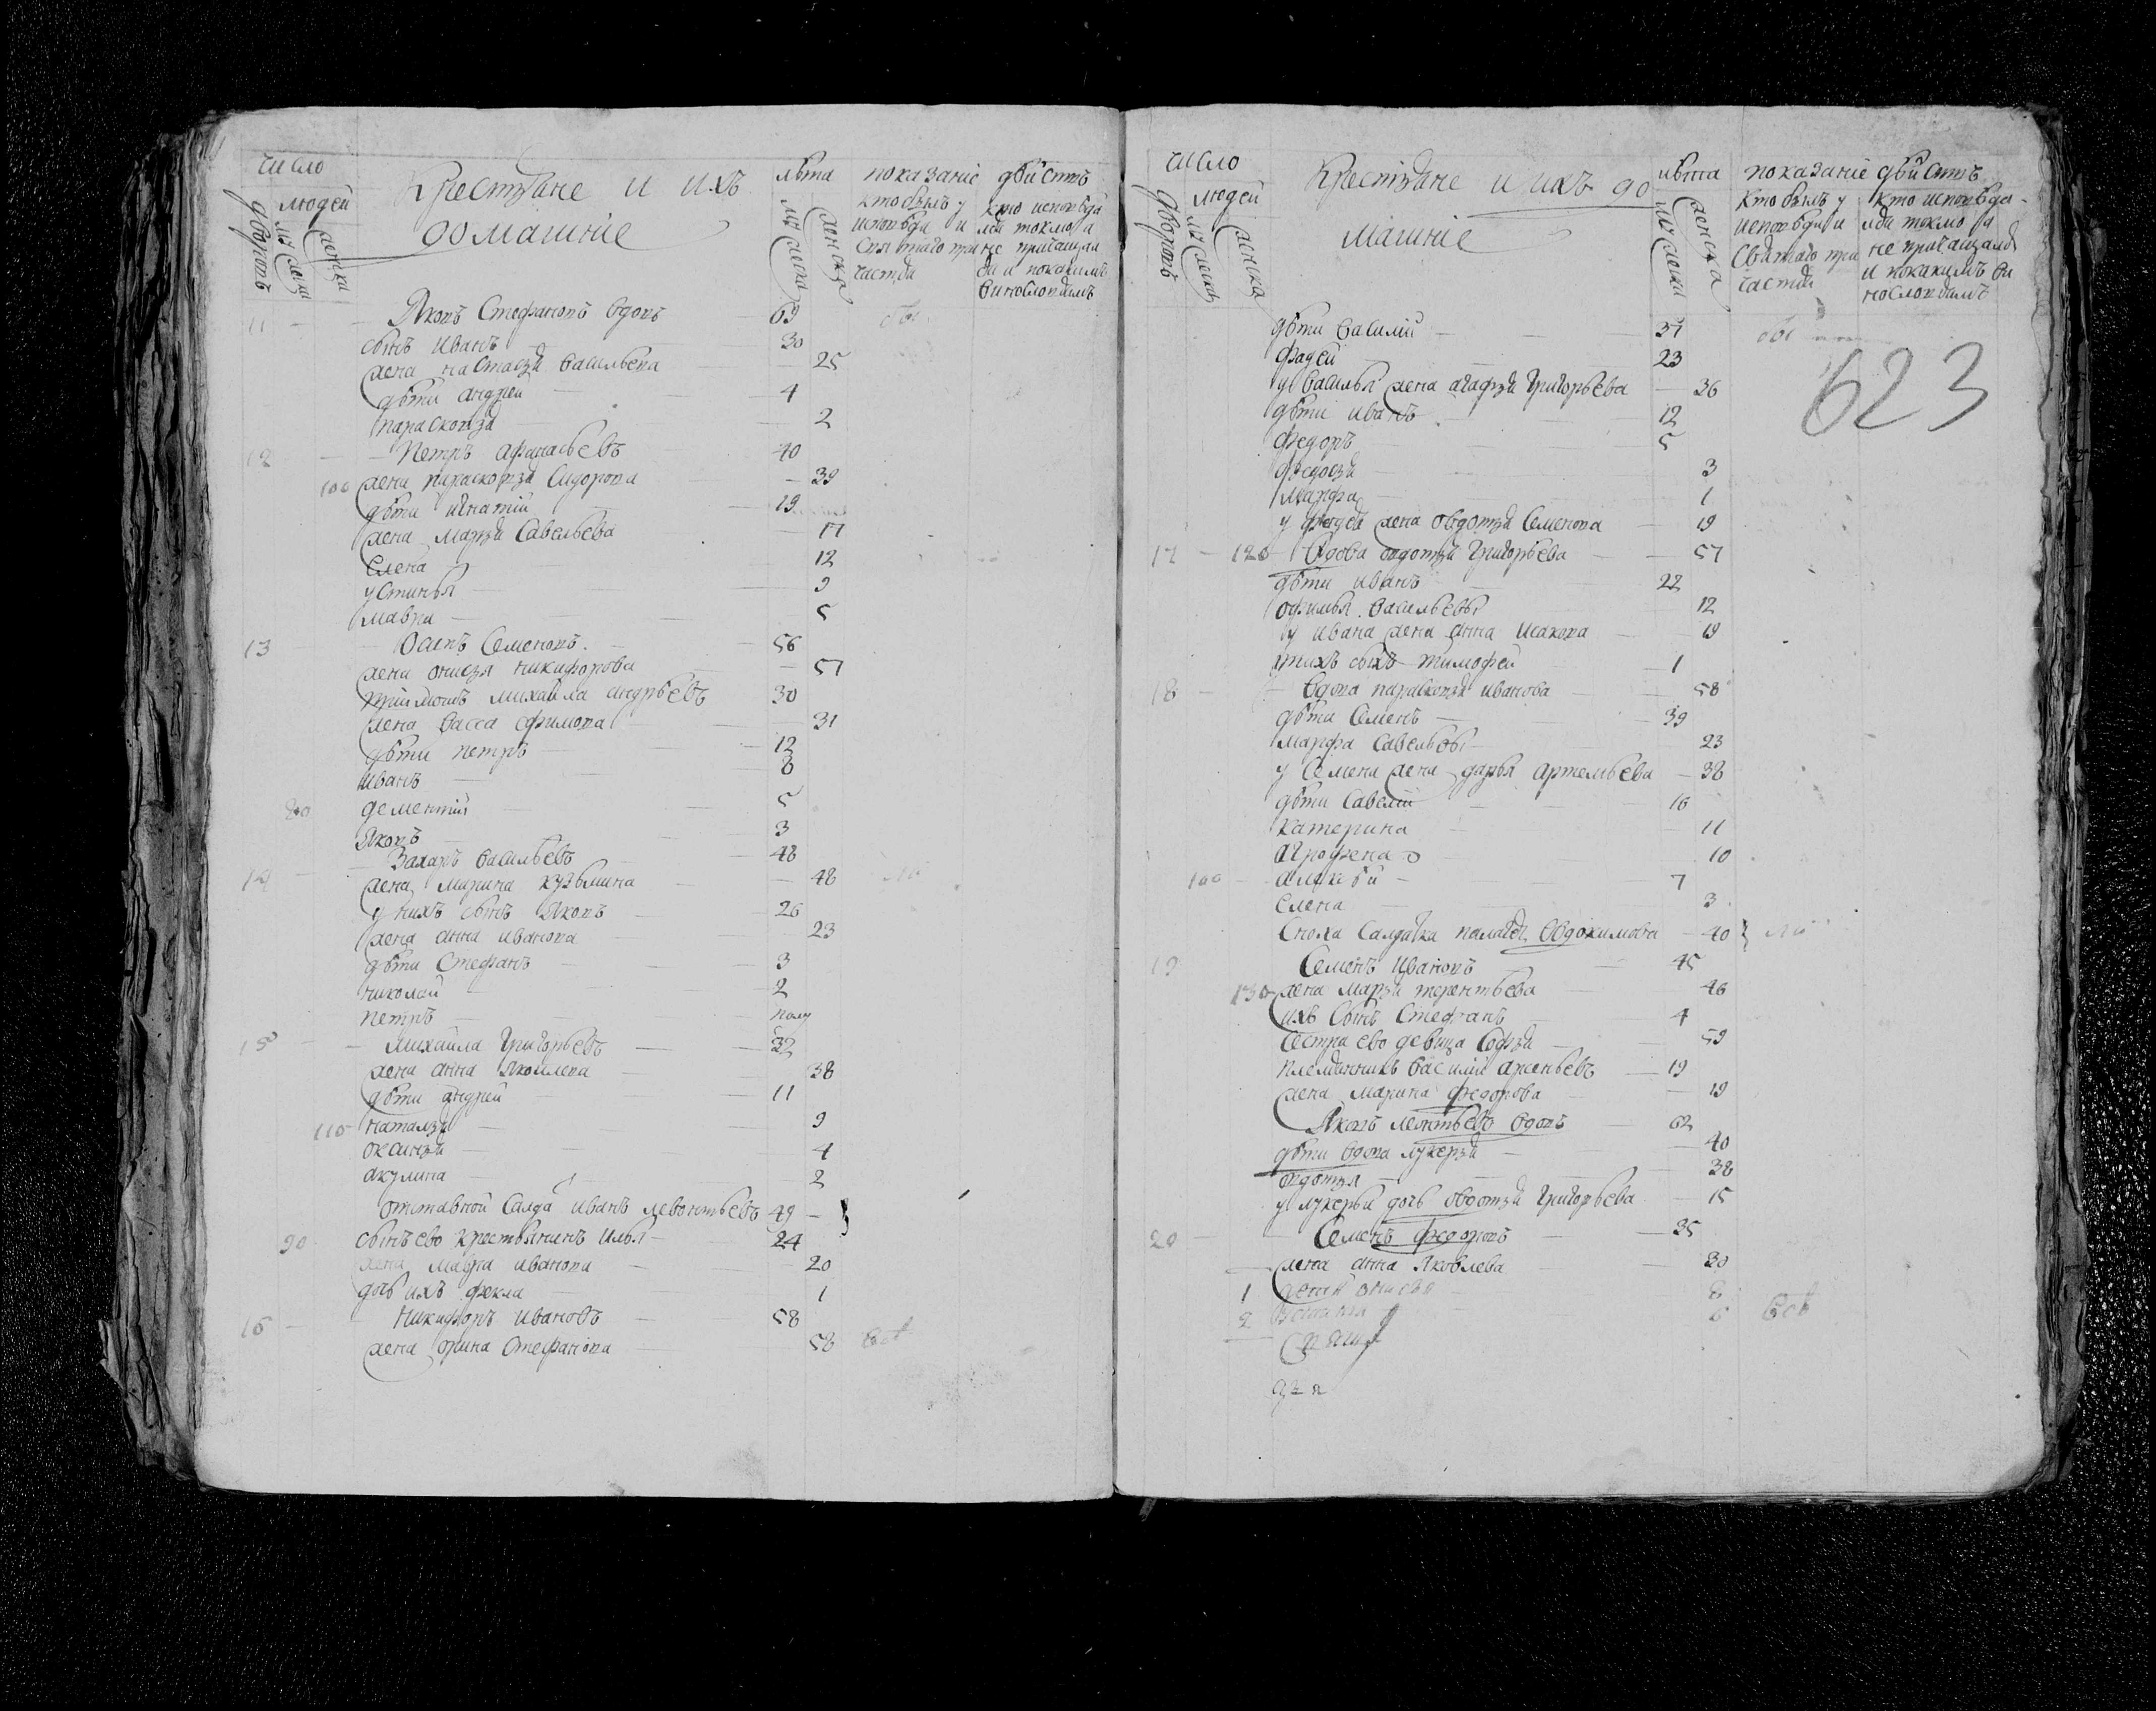 число
людей
дворовъ
мужеска
женска
Крестьяне и ихъ
домашніе
лѣта
мужеска
женска
показаніе дѣйствъ
кто былъ у
исповѣди и
святаго при
частия
кто исповѣда
лся токмо а
не причащал
ся и покакимъ
винословіямъ
11 Яковъ Стефановъ вдовъ 69
сынъ Иванъ 30
жена Настасья Васильева 25
дѣти Андрей 4
Парасковья 2
12 Петръ Афанасьевъ 40
100 жена Парасковья Сидорова 39
дѣти Игнатій 19
жена Марья Савельева 17
Елена 12
Устинья 9
Мавра 5
13 Осипъ Семеновъ 56
жена Анисья Никифорова 57
пріимышъ Михайла Андрѣевъ 30
жена Васса Ефимова 31
дѣти Петръ 12
Иванъ 8
80 Дементій 5
Яковъ 3
14 Захаръ Васильевъ 48
жена Марина Кузьмина 48
у нихъ сынъ Яковъ 26
жена Анна Иванова 23
дѣти Стефанъ 3
Николай 2
Петръ полу
15 Михайла Григорьевъ 32
жена Анна Яковлева 38
дѣти Андрей 11
110 Наталья 9
Оксинья 4
Акулина 2
отставной салда Иванъ Левонтьевъ 49
90 сынъ ево крестьянинъ Илья 24
жена Мавра Иванова 20
дочь ихъ Фекла 1
16 Никифоръ Ивановъ 58
жена Орина Стефанова 58 всѣ
число
людей
дворовъ
мужеска
женска
Крестьяне и ихъ до
машніе
лѣта
мужеска
женска
показаніе дѣйствъ
кто былъ у
исповѣди и
святаго при
частия
кто исповѣда
лся токмо а
не причащался
и покакимъ ви
нословіямъ
623
дѣти Василій 37
Фадей 23
у Василья жена Агафья Григорьева 36
дѣти Иванъ 12
Федоръ 5
Федосья 3
Марфа 1
у Фадея жена Овдотья Семенова 19
17 120 Вдова Овдотья Григорьева 57
дѣти Иванъ 22
Офимья Васильевы 12
у Ивана жена Анна Исакова 19
ихъ сынъ Тимофей 1
18 Вдова Парасковья Иванова 58
дѣти Семенъ 39
Марфа Савельевы 23
у Семена жена Дарья Артемьева 38
дѣти Савелій 16
Катерина 11
Аграфена 10
100 Алексѣй 7
Елена 3
сноха салдатка Палагея Овдокимова 40
19 Семенъ Ивановъ 45
130 жена Марья Терентьева 46
ихъ сынъ Стефанъ 4
сестра ево девица Софья 59
племянникъ Василій Арсеньевъ 19
жена Марина Федорова 19
Яковъ Леонтьевъ вдовъ 62
дѣти вдова Лукерья 40
Овдотья 38
у Лукерьи дочь Овдотья Григорьева 15
20 Семенъ Федоровъ 35
жена Анна Яковлева 30
1
2 всѣ